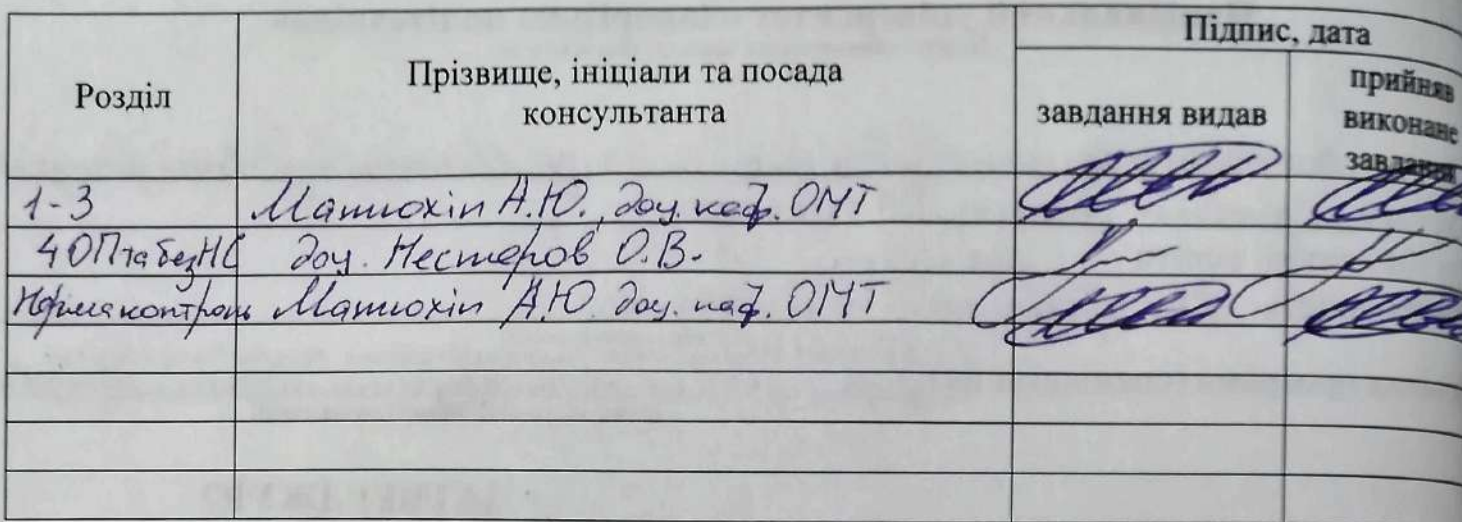 Підпис, дата
Розділ
Прізвище, ініціали та посада
консультанта
завдання видав
прийняв
виконане
завдання
1-3 Матюхін А.Ю., доц. каф. ОМТ
4 ОП та без НС доц. Нестеров О.В.
Нормаконтроль Матюхін А.Ю. доц. каф. ОМТ